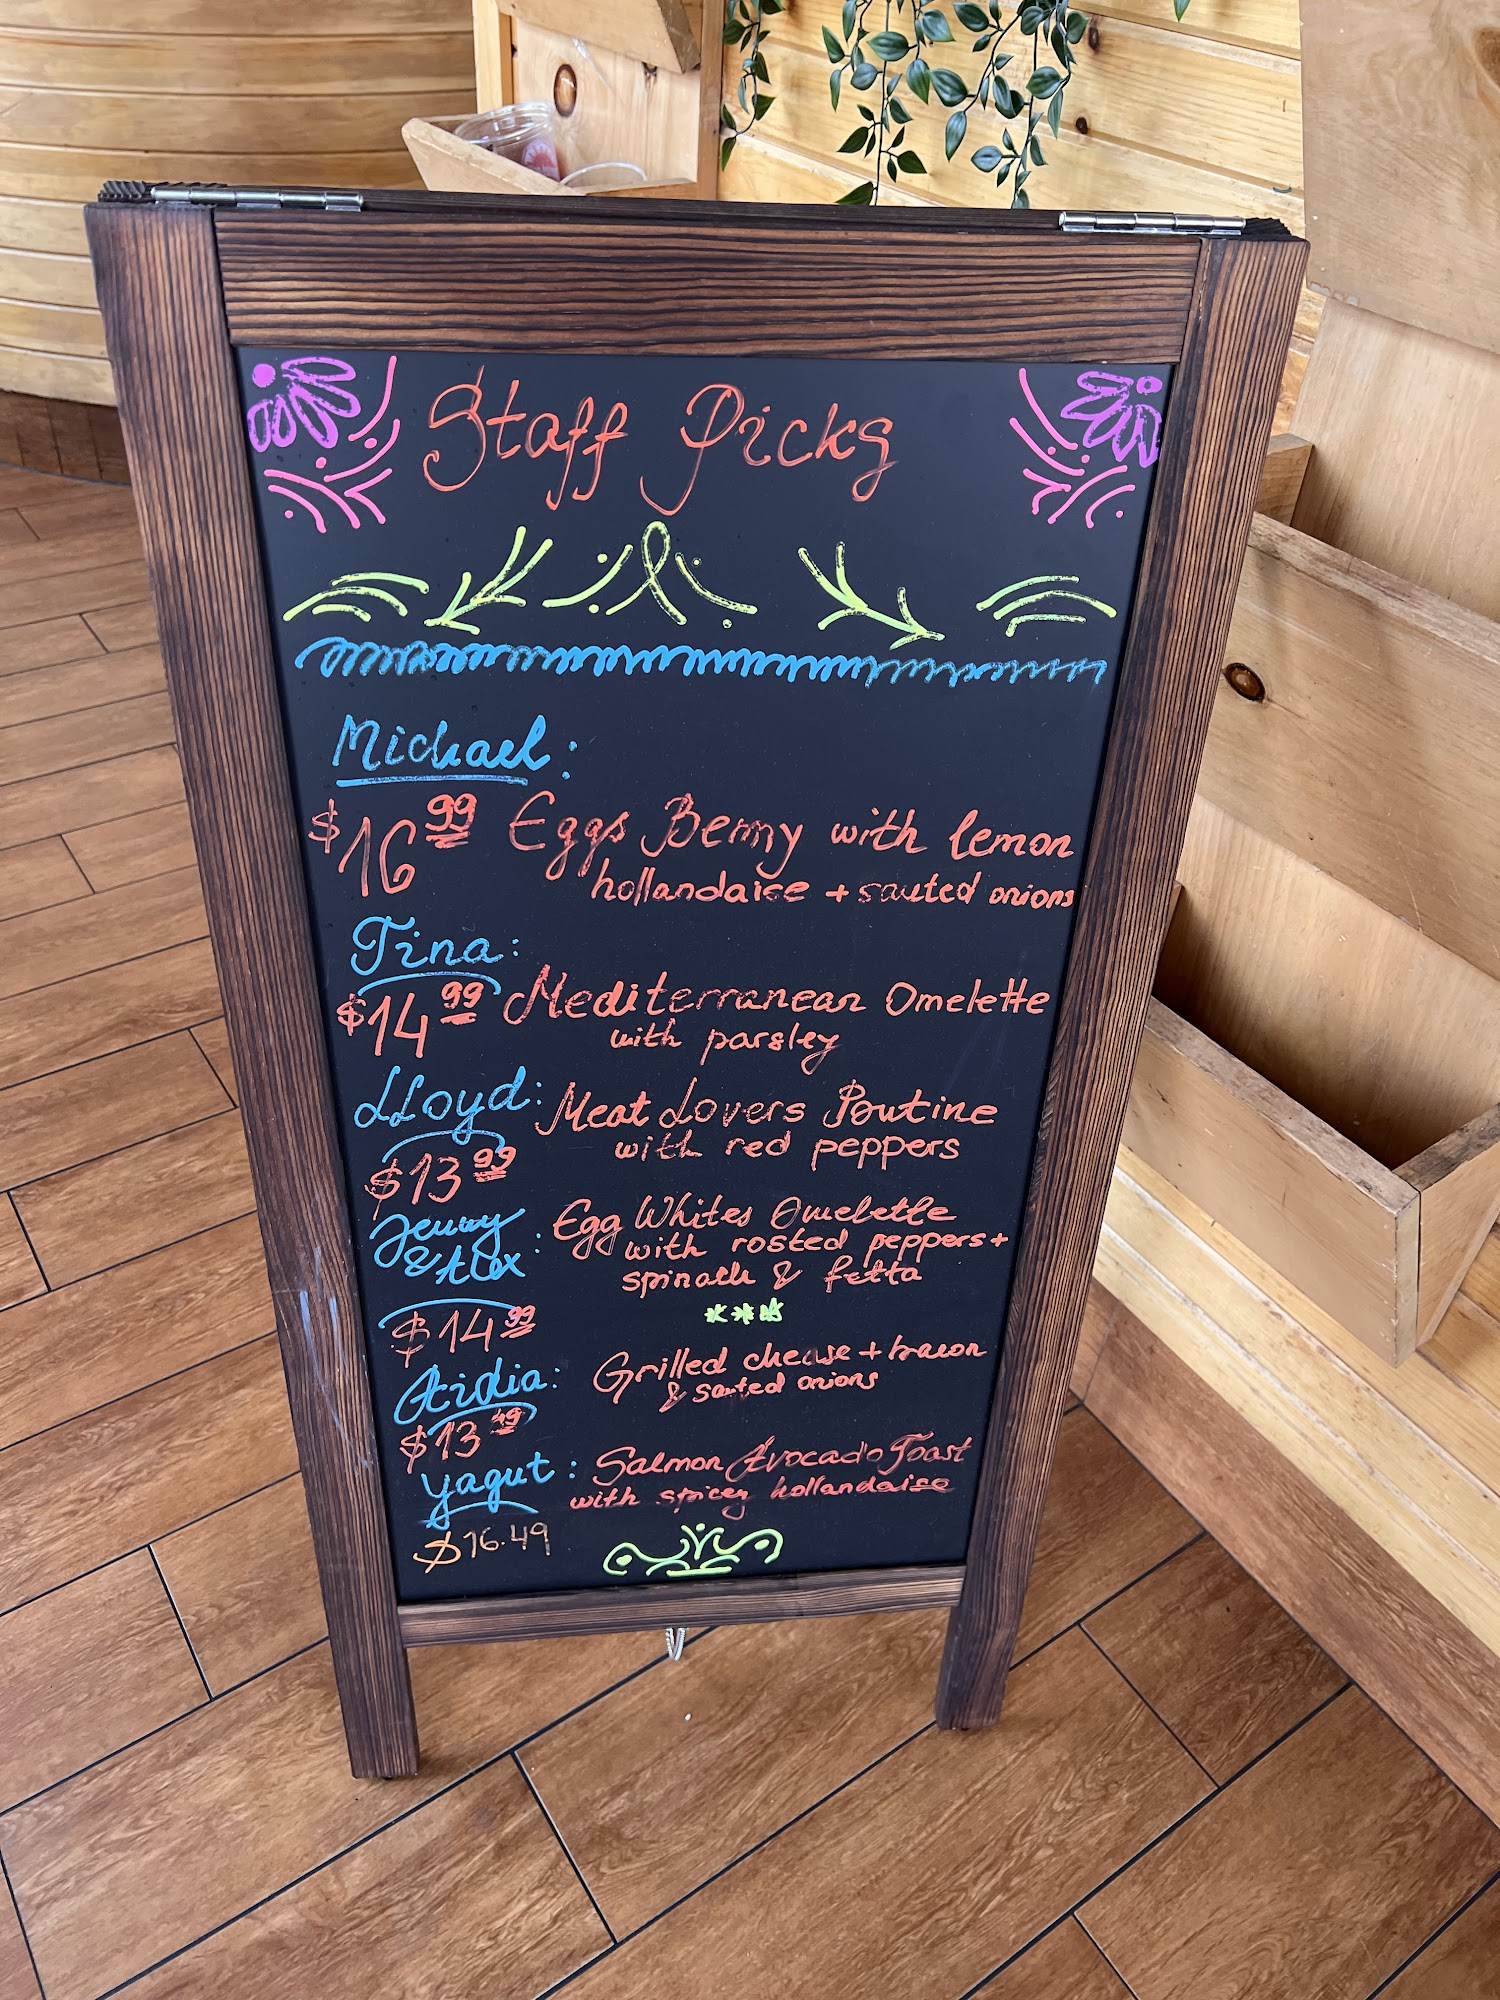 Staff Picks
Michael:
$16.99 Eggs Benny with lemon
hollandaise + sauted onions
Tina:
$14.99 Mediterranean Omelette
with parsley
Lloyd: Meat Lovers Poutine
with red peppers
$13.99
Jenny
& Alex: Egg Whites Omelette
with rosted peppers +
spinach & fetta
$14.99
Aidia: Grilled cheese + bacon
& sauted onions
$13.49
Yagut: Salmon Avocado Toast
with spicey hollandaise
$16.49